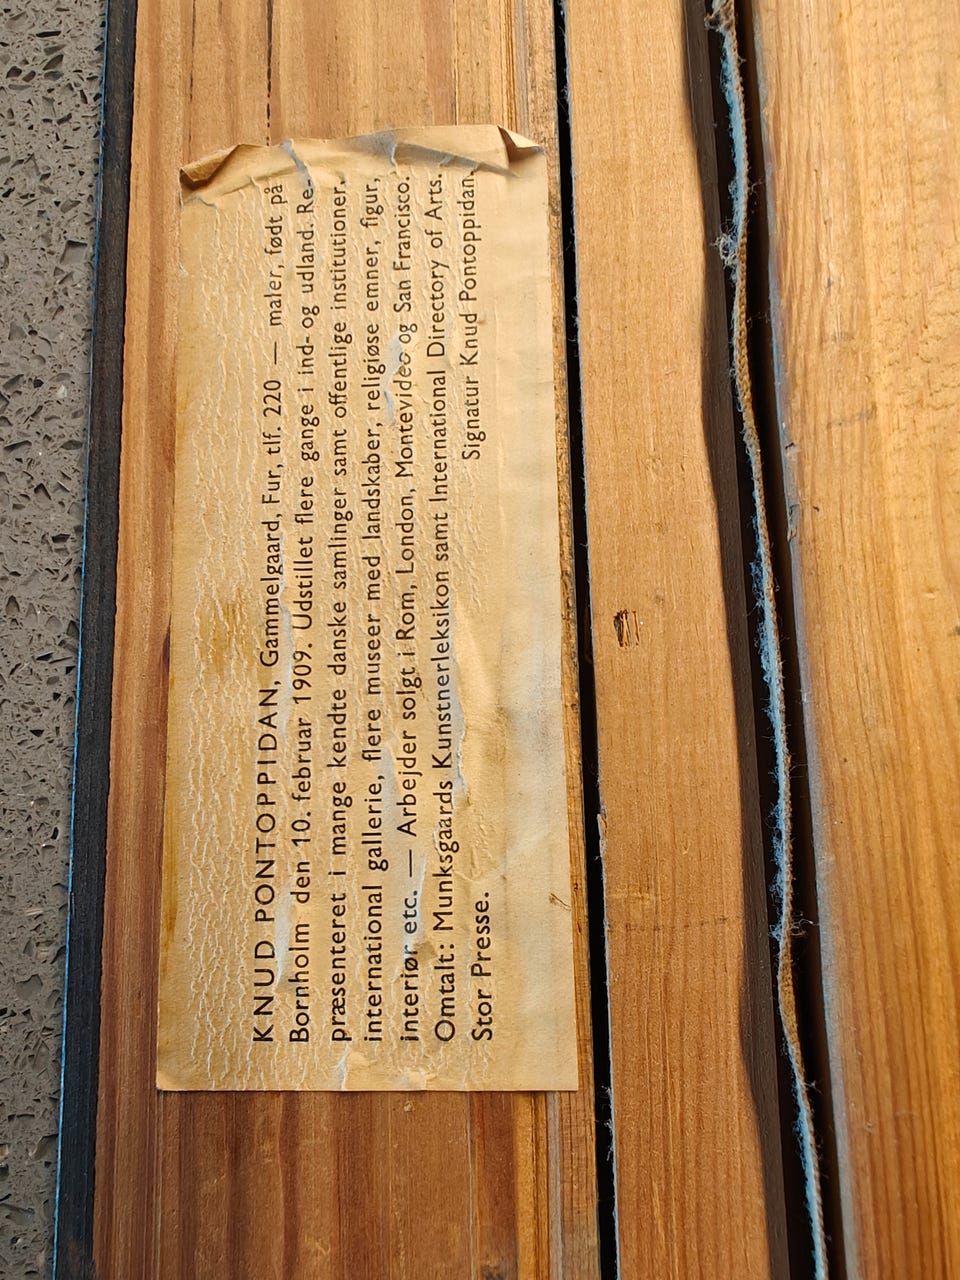 KNUD PONTOPPIDAN, Gammelgaard, Fur, tlf. 220 — maler, født på
Bornholm den 10. februar 1909. Udstillet flere gange i ind- og udland. Re-
præsenteret i mange kendte danske samlinger samt offentlige institutioner,
international gallerie, flere museer med landskaber, religiøse emner, figur,
interiør etc. — Arbejder solgt i Rom, London, Montevideo og San Francisco.
Omtalt: Munksgaards Kunstnerleksikon samt International Directory of Arts.
Stor Presse. Signatur Knud Pontoppidan.